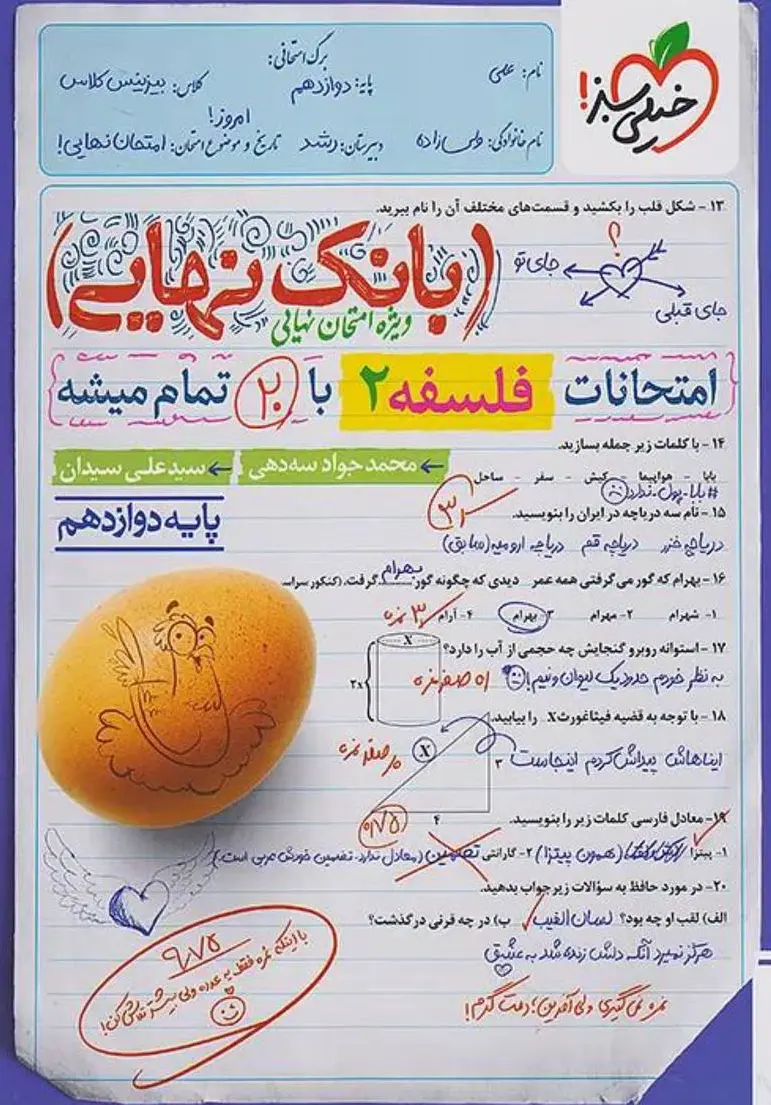 خیلی سبز!
برگ امتحانی:
نام: علی
پایه: دوازدهم
کلاس: بیزینس کلاس
نام خانوادگی: ولی‌زاده
دبیرستان: رشد
تاریخ و موضوع امتحان: امروز! امتحان نهایی!
۱۳ - شکل قلب را بکشید و قسمت‌های مختلف آن را نام ببرید.
؟
جای تو
جای قبلی
(بانک نهایی)
ویژه امتحان نهایی
امتحانات فلسفه ۲ با ۲۰ تمام میشه
۱۴ - با کلمات زیر جمله بسازید.
بابا - هواپیما - کیش - سفر - ساحل
#بابا-پول-ندارد
محمدجواد سه‌دهی
سیدعلی سیدان
پایه دوازدهم
۱۵ - نام سه دریاچه در ایران را بنویسید.
۳
دریاچه خزر دریاچه قم دریاچه ارومیه (سابق)
۱۶ - بهرام که گور می‌گرفتی همه عمر دیدی که چگونه گور بهرام گرفت. (کنکور سراسر
۱- شهرام ۲- مهرام ۳- بهرام ۴- آرام
۳ نمره
۱۷ - استوانه روبرو گنجایش چه حجمی از آب را دارد؟
X
۲x
به نظر خودم حدود یک لیوان و نیم!
صفر نمره
۱۸ - با توجه به قضیه فیثاغورث X را بیابید.
ایناهاش پیداش کردم اینجاست
X
۳
۴
صفر نمره
۰/۷۵
۱۹- معادل فارسی کلمات زیر را بنویسید.
۱- پیتزا (همون پیتزا) ۲- گارانتی تضمین (معادل ندارد. تضمین خودش عربی است.)
۲۰- در مورد حافظ به سؤالات زیر جواب بدهید.
الف) لقب او چه بود؟ لسان الغیب ب) در چه قرنی درگذشت؟
هرگز نمیرد آنکه دلش زنده شد به عشق
نمره نمی‌گیری ولی آفرین؛ دمت گرم!
۹/۷۵
با اینکه نمره فقط یه عدده ولی بیشتر تلاش کن!